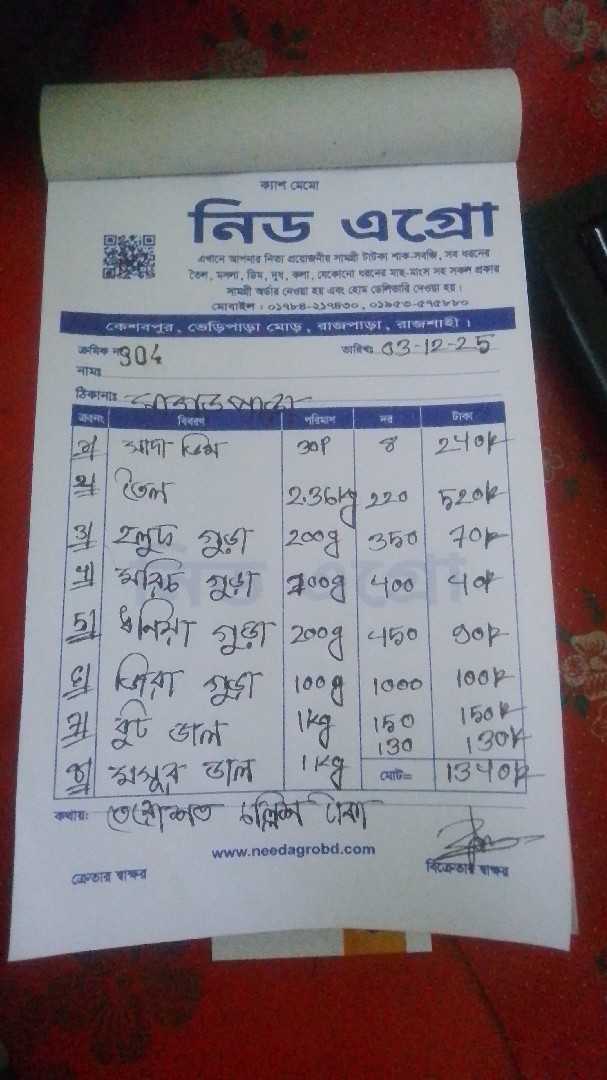 ক্যাশ মেমো
নিড এগ্রো
এখানে আপনার নিত্য প্রয়োজনীয় সামগ্রী টাটকা শাক-সবজি, সব ধরনের
তৈল, মসলা, ডিম, দুধ, কলা, যেকোনো ধরনের মাছ-মাংস সহ সকল প্রকার
সামগ্রী অর্ডার নেওয়া হয় এবং হোম ডেলিভারি দেওয়া হয়।
মোবাইল :
কেশবপুর, ভেড়িপাড়া মোড়, রাজপাড়া, রাজশাহী।
ক্রমিক নং 304 তারিখঃ 03-12-25
নামঃ
ঠিকানাঃ
ক্রঃনং বিবরণ পরিমাণ দর টাকা
১। সাদা ডিম 30P 8 240/-
২। তৈল 2.36kg 220 520/-
৩। হলুদ গুড়া 200g 350 70/-
৪। মরিচ গুড়া 100g 400 40/-
৫। ধনিয়া গুড়া 200g 450 90/-
৬। জিরা গুড়া 100g 1000 100/-
৭। বুট ডাল 1kg 150 150/-
৮। মসুর ডাল 1kg 130 130/-
মোট= 1340/-
কথায়ঃ তেরোশত চল্লিশ টাকা
www.needagrobd.com
ক্রেতার স্বাক্ষর বিক্রেতার স্বাক্ষর